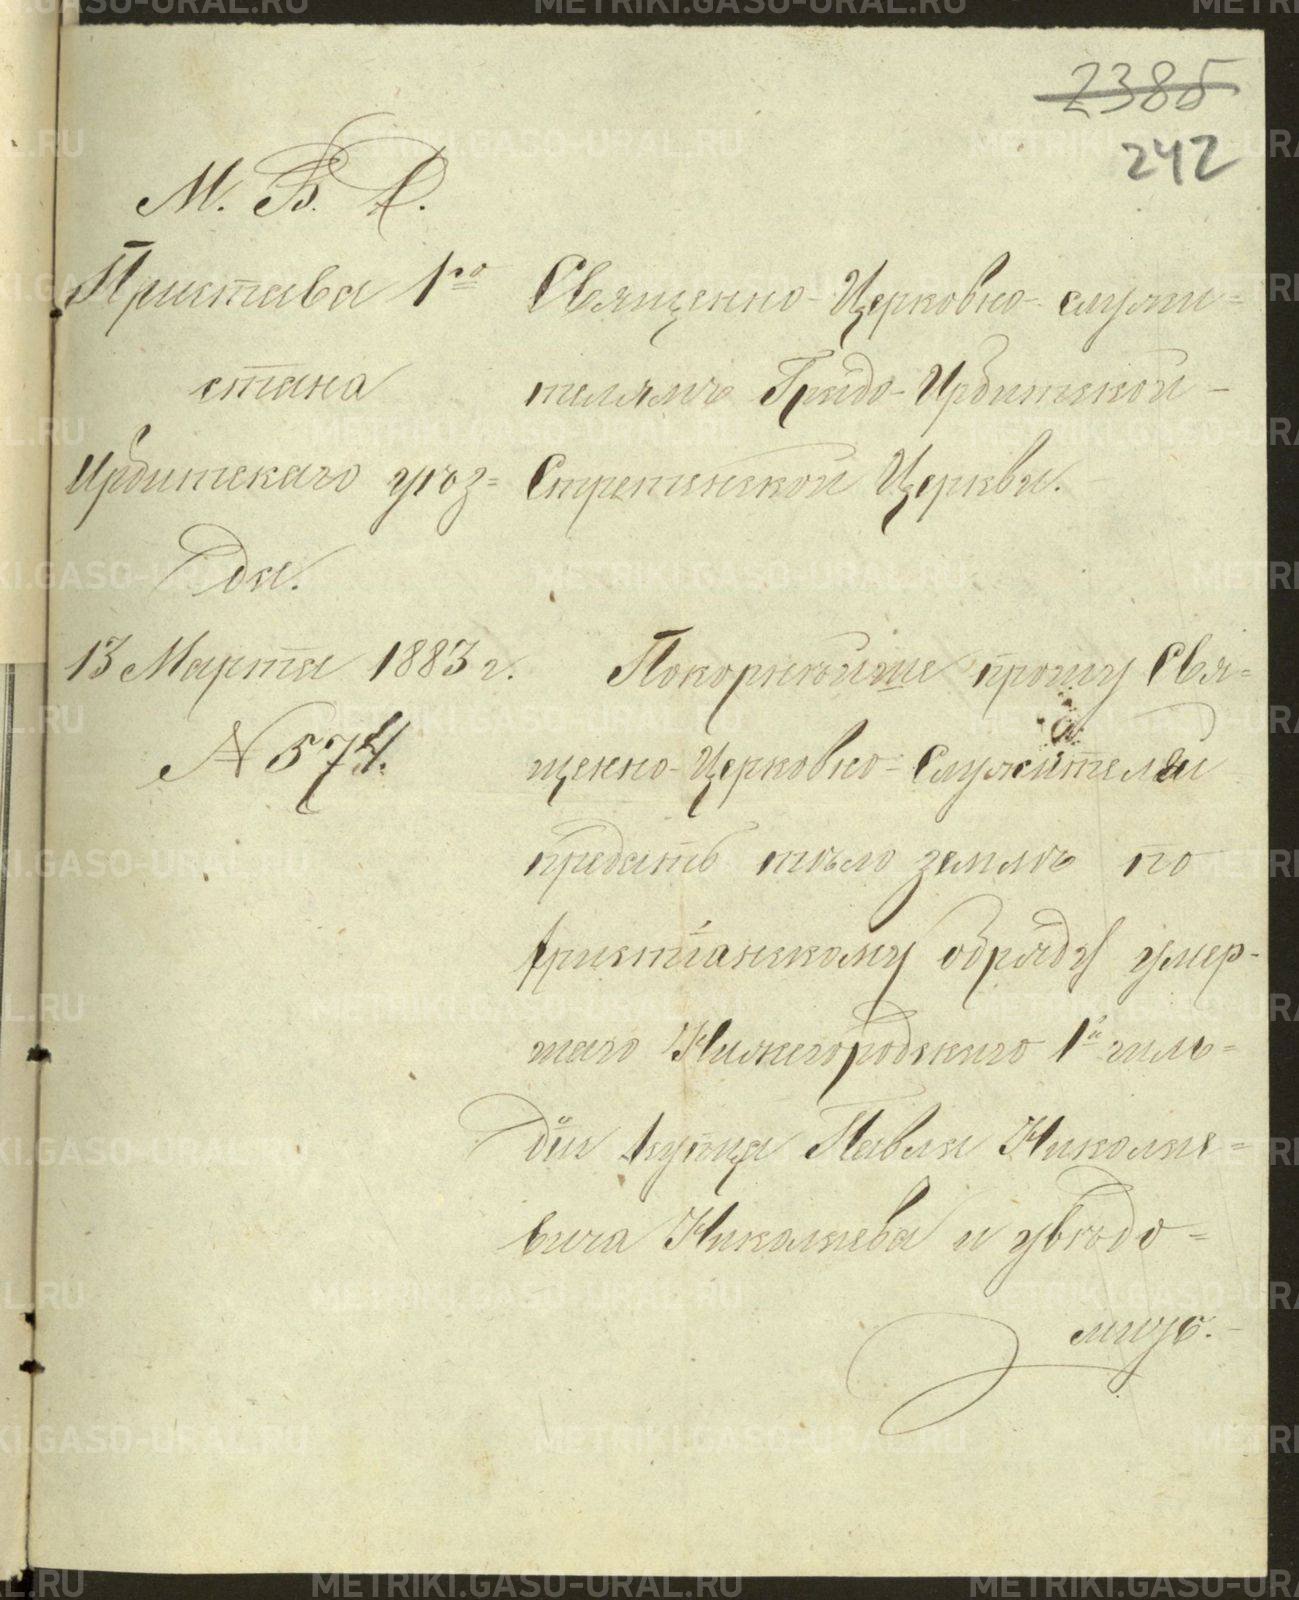 238б
242
М. В. Д.
Пристава 1го
стана
Ирбитскаго уѣз=
да.
13 Марта 1883 г.
№ 574.
Священно-Церковно-служи=
телямъ Градо-Ирбитской-
Стретенской Церкви.
Покорнѣйше прошу Свя=
щенно-Церковно-Служителей
предать тѣло землѣ по
христіанскому обряду умер-
шаго Нижегородскаго 1й гиль=
діи купца Павла Николае=
вича Николаева и увѣдо=
мить.
METRIKI.GASO-URAL.RU